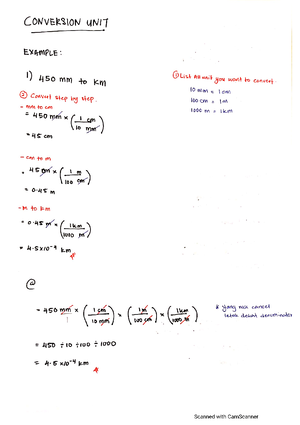 CONVERSION UNIT
EXAMPLE:
1) 450 mm to km
① List all unit you want to convert.
10 mm = 1 cm
100 cm = 1 m
1000 m = 1 km
② Convert step by step.
- mm to cm
= 450 mm × (1 cm / 10 mm)
= 45 cm
- cm to m
= 45 cm × (1 m / 100 cm)
= 0.45 m
- m to km
= 0.45 m × (1 km / 1000 m)
= 4.5×10⁻⁴ km
@
= 450 mm × (1 cm / 10 mm) × (1 m / 100 cm) × (1 km / 1000 m)
* yang nak cancel
letak dekat denominator
= 450 ÷ 10 ÷ 100 ÷ 1000
= 4.5×10⁻⁴ km
Scanned with CamScanner